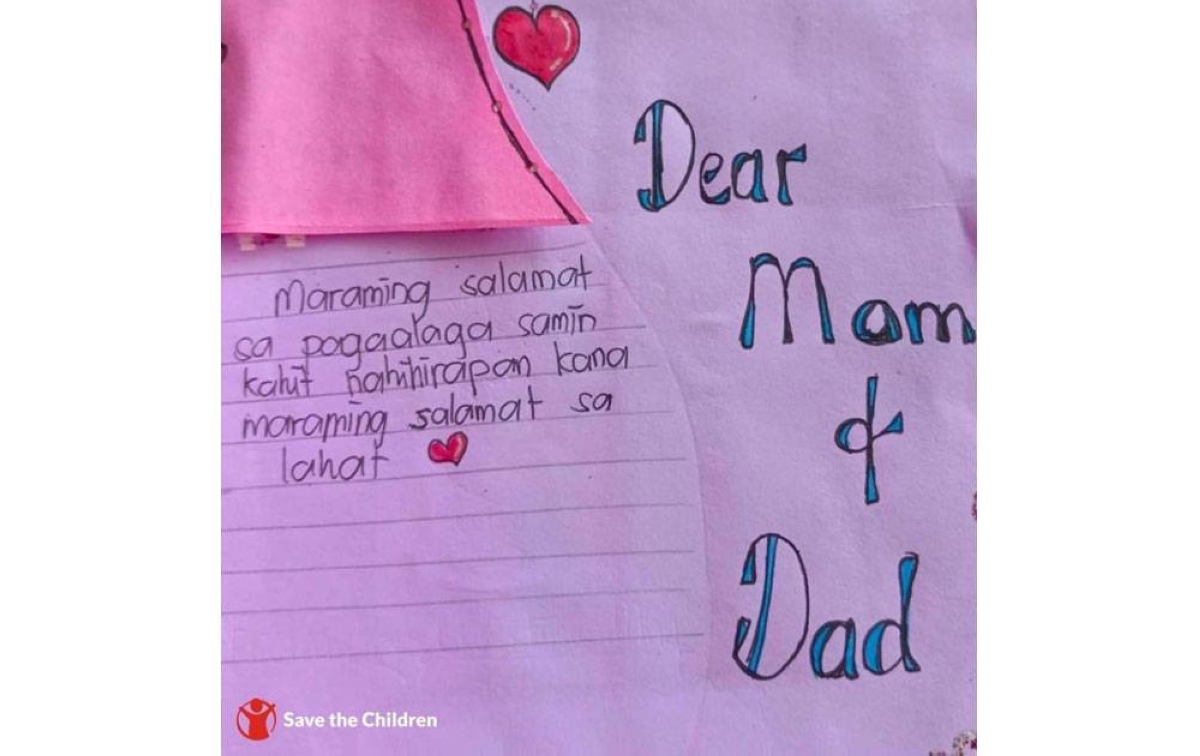 Dear
Mam
&
Dad
Maraming salamat
sa pagaalaga samin
kahit nahihirapan kana
maraming salamat sa
lahat
Save the Children